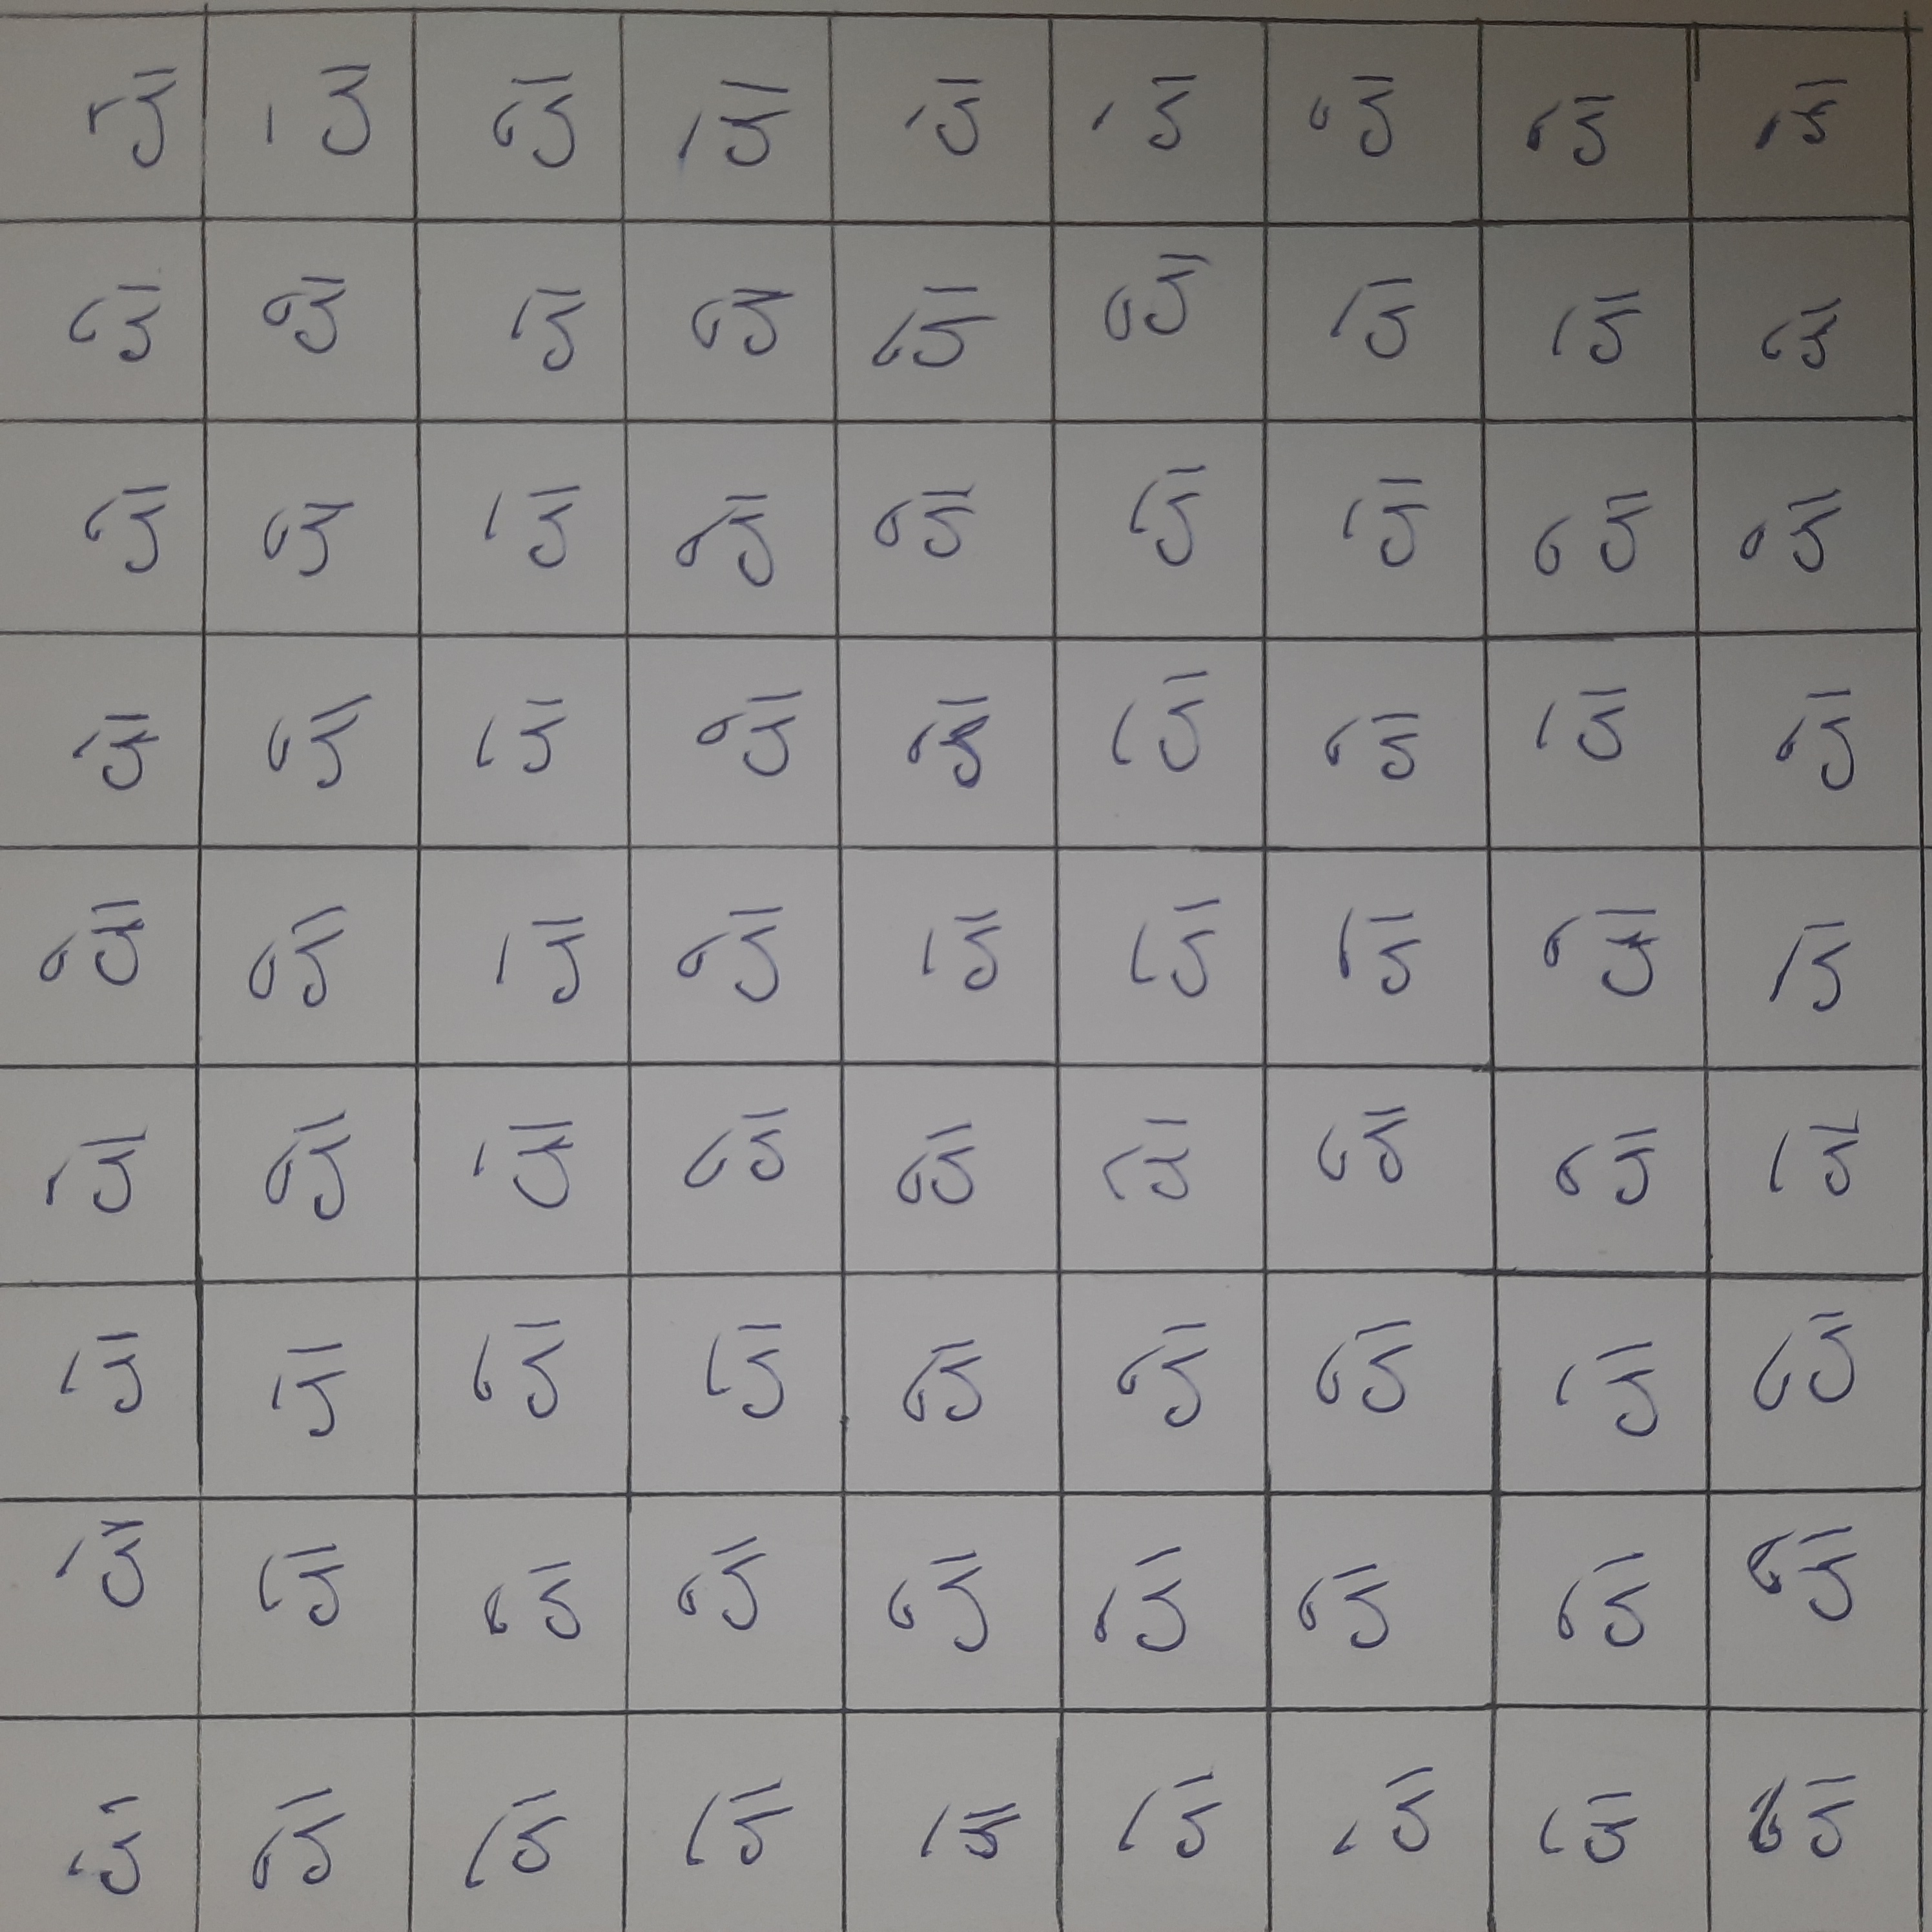 વો વો વો વો વો વો વો વો વો
વો વો વો વો વો વો વો વો વો
વો વો વો વો વો વો વો વો વો
વો વો વો વો વો વો વો વો વો
વો વો વો વો વો વો વો વો વો
વો વો વો વો વો વો વો વો વો
વો વો વો વો વો વો વો વો વો
વો વો વો વો વો વો વો વો વો
વો વો વો વો વો વો વો વો વો